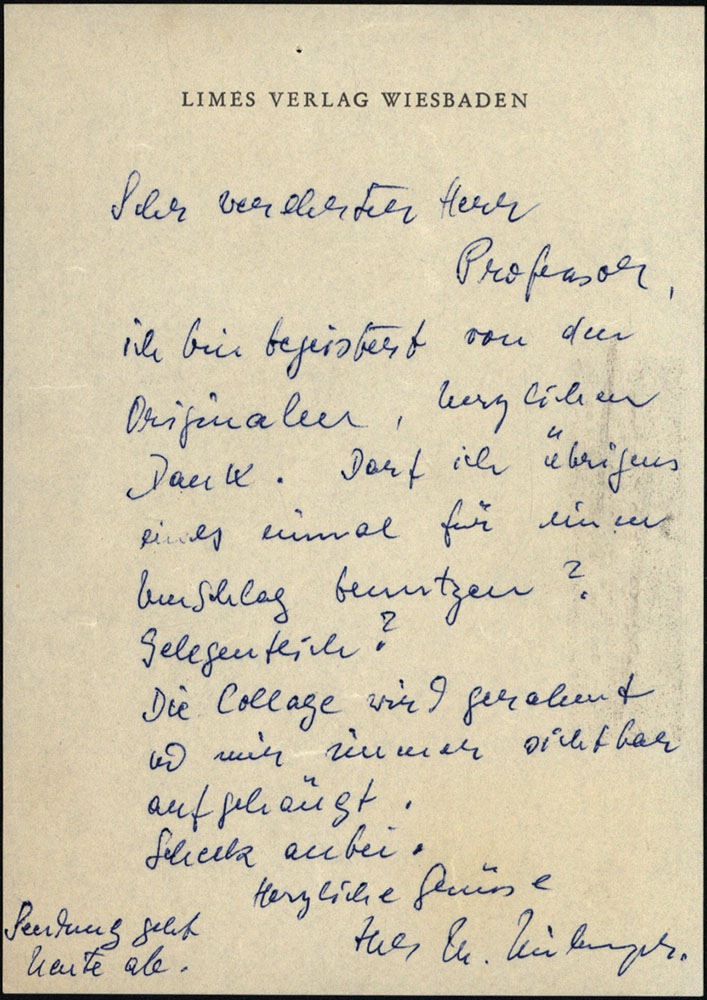 LIMES VERLAG WIESBADEN
Sehr verehrter Herr
Professor,
ich bin begeistert von den
Originalen, herzlichen
Dank. Darf ich übrigens
eines einmal für einen
Umschlag benutzen?
Gelegentlich?
Die Collage wird gerahmt
und mir immer sichtbar
aufgehängt.
Scheck anbei.
Herzliche Grüsse
Ihr
Sendung geht
heute ab.